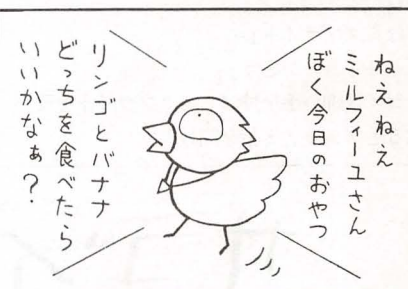 ねえねえ
ミルフィーユさん
ぼく今日のおやつ
リンゴとバナナ
どっちを食べたら
いいかなぁ？